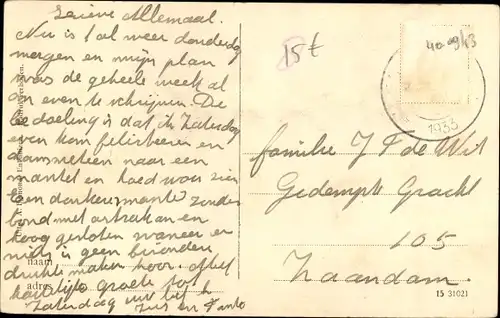 Lieve Allemaal.
Nu is 't al weer donderdag
morgen en mijn plan
was de geheele week al
om even te schrijven. De
bedoeling is dat ik Zaterdag
even kom feliciteeren en
dan meteen naar een
mantel en hoed wou zien
Een donkere mantel zonder
bont met astrakan en
hoog gesloten wanneer er
niets is geen bizondere
drukte maken hoor. Met
hartelijke groete tot
Zaterdag uw
Zus en
naam
adres
15 ct
1933
familie J F de Wit
Gedempte Gracht
105
Zaandam.
15 31021